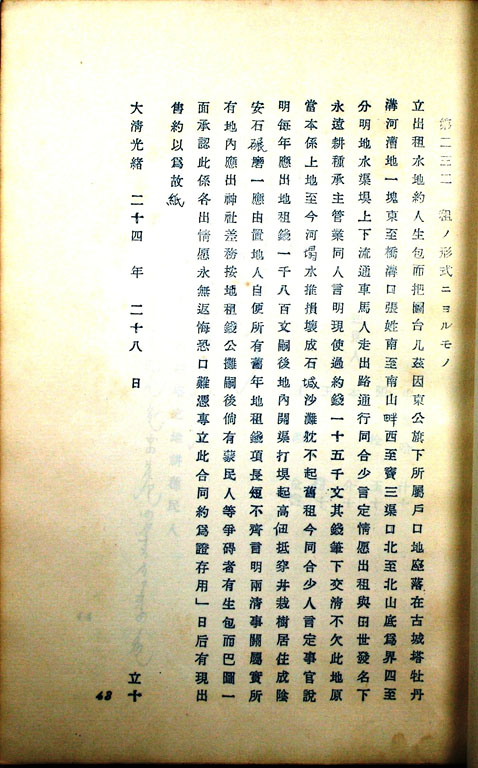 第二三二 租ノ形式ニヨルモノ
立出租水地約人生包而把圖台几茲因東公旗下所屬戶口地座落在古城塔牡丹
溝河漕地一塊東至橋溝口張姓南至南山畔西至寶三渠口北至北山底爲界四至
分明地水渠埧上下流通車馬人走出路通行同合少言定情愿出租與田世發名下
永遠耕種承主管業同人言明現使過約錢一十五千文其錢筆下交清不欠此地原
當本係上地至今河塌水推損壞成石堿沙灘躭不起舊租今同合少人言定事官說
明每年應出地租錢一千八百文嗣後地內開渠打埧起高伹抵穿井栽樹居住成陰
安石碾磨一應由置地人自便所有舊年地租錢項長短不齊言明兩清事關屬實所
有地內應出神社差務按地租錢公攤嗣後倘有蒙民人等爭碍者有生包而巴圖一
面承認此係各出情愿永無返悔恐口難憑專立此合同約爲證存用」日后有現出
舊約以爲故紙
大清光緒 二十四 年 二十八 日 立十
43